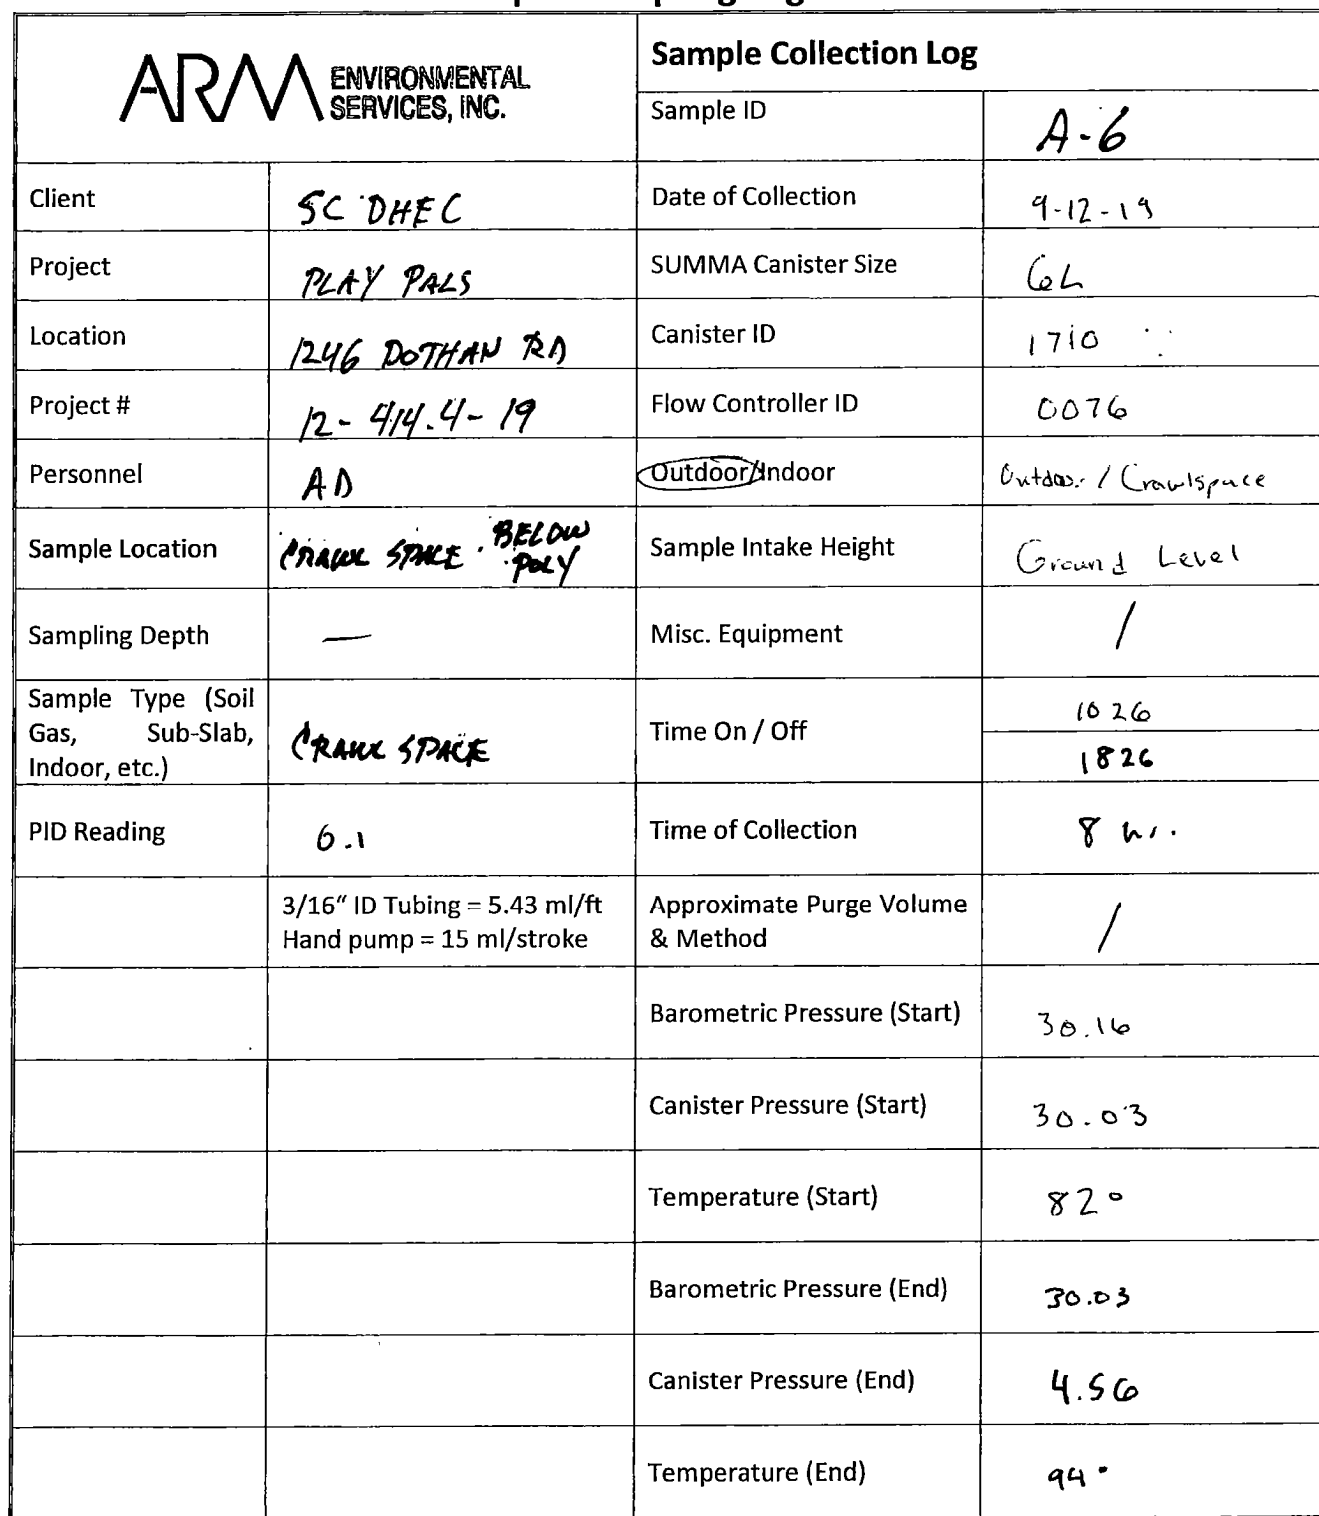 ARM ENVIRONMENTAL
SERVICES, INC.
Sample Collection Log
Sample ID A-6
Client SC DHEC Date of Collection 9-12-19
Project PLAY PALS SUMMA Canister Size 6L
Location 1246 DOTHAN RD Canister ID 1710
Project # 12-414.4-19 Flow Controller ID 0076
Personnel AD Outdoor/Indoor Outdoor / Crawlspace
Sample Location CRAWL SPACE BELOW
POLY
Sample Intake Height Ground Level
Sampling Depth — Misc. Equipment /
Sample Type (Soil
Gas, Sub-Slab,
Indoor, etc.)
CRAWL SPACE
Time On / Off 1026
1826
PID Reading 0.1 Time of Collection 8 hr.
3/16" ID Tubing = 5.43 ml/ft
Hand pump = 15 ml/stroke
Approximate Purge Volume
& Method /
Barometric Pressure (Start) 30.16
Canister Pressure (Start) 30.03
Temperature (Start) 82°
Barometric Pressure (End) 30.03
Canister Pressure (End) 4.56
Temperature (End) 94°